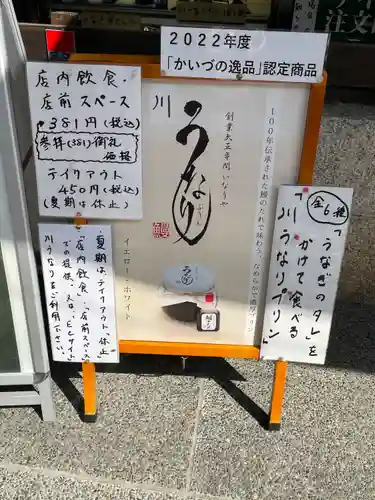 2022年度
「かいづの逸品」認定商品
店内飲食・
店前スペース
381円(税込)
参拝(381)御礼
価格
テイクアウト
450円(税込)
(夏期は休止)
川
うなりぷりん
創業大正参間 いなりや
100年伝承された鰻のたれで味わう、なめらかプリン
イエロー・ホワイト
全6種
「うなぎのタレ」を
かけて食べる
「川うなりプリン」
夏期はテイクアウト休止
です。
店内飲食・店前スペース